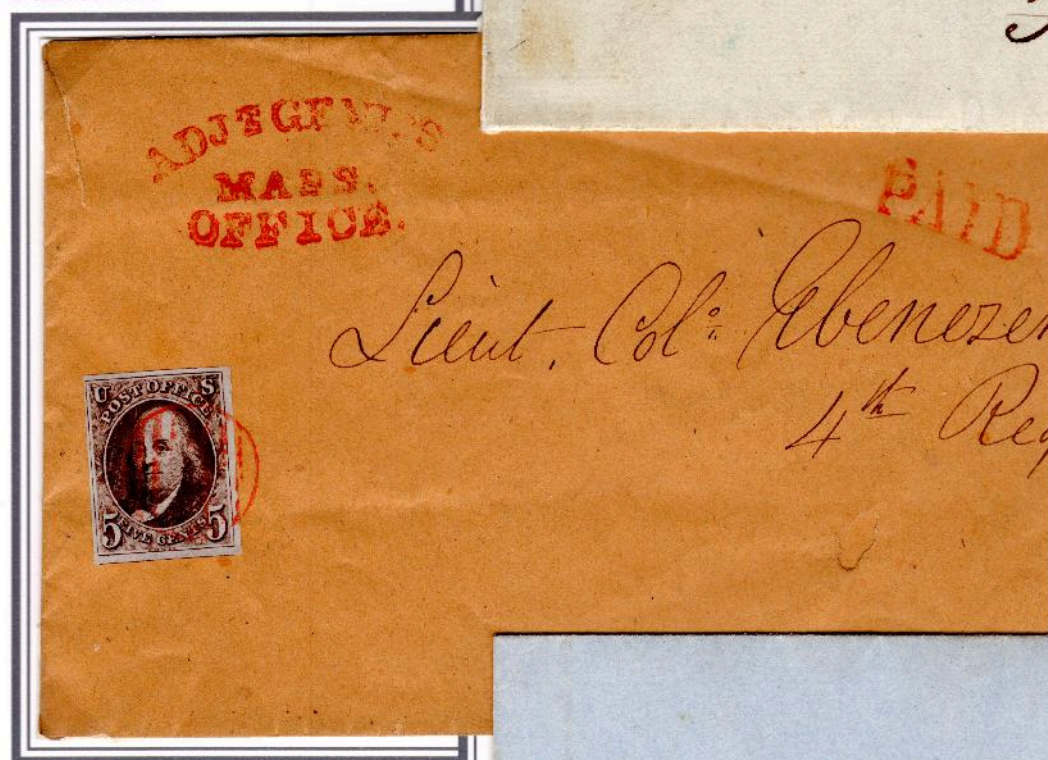 ADJT GENL'S
MASS.
OFFICE.
PAID
Lieut. Col: Ebenezer
4th Reg
U S
POST OFFICE
5 FIVE CENTS 5